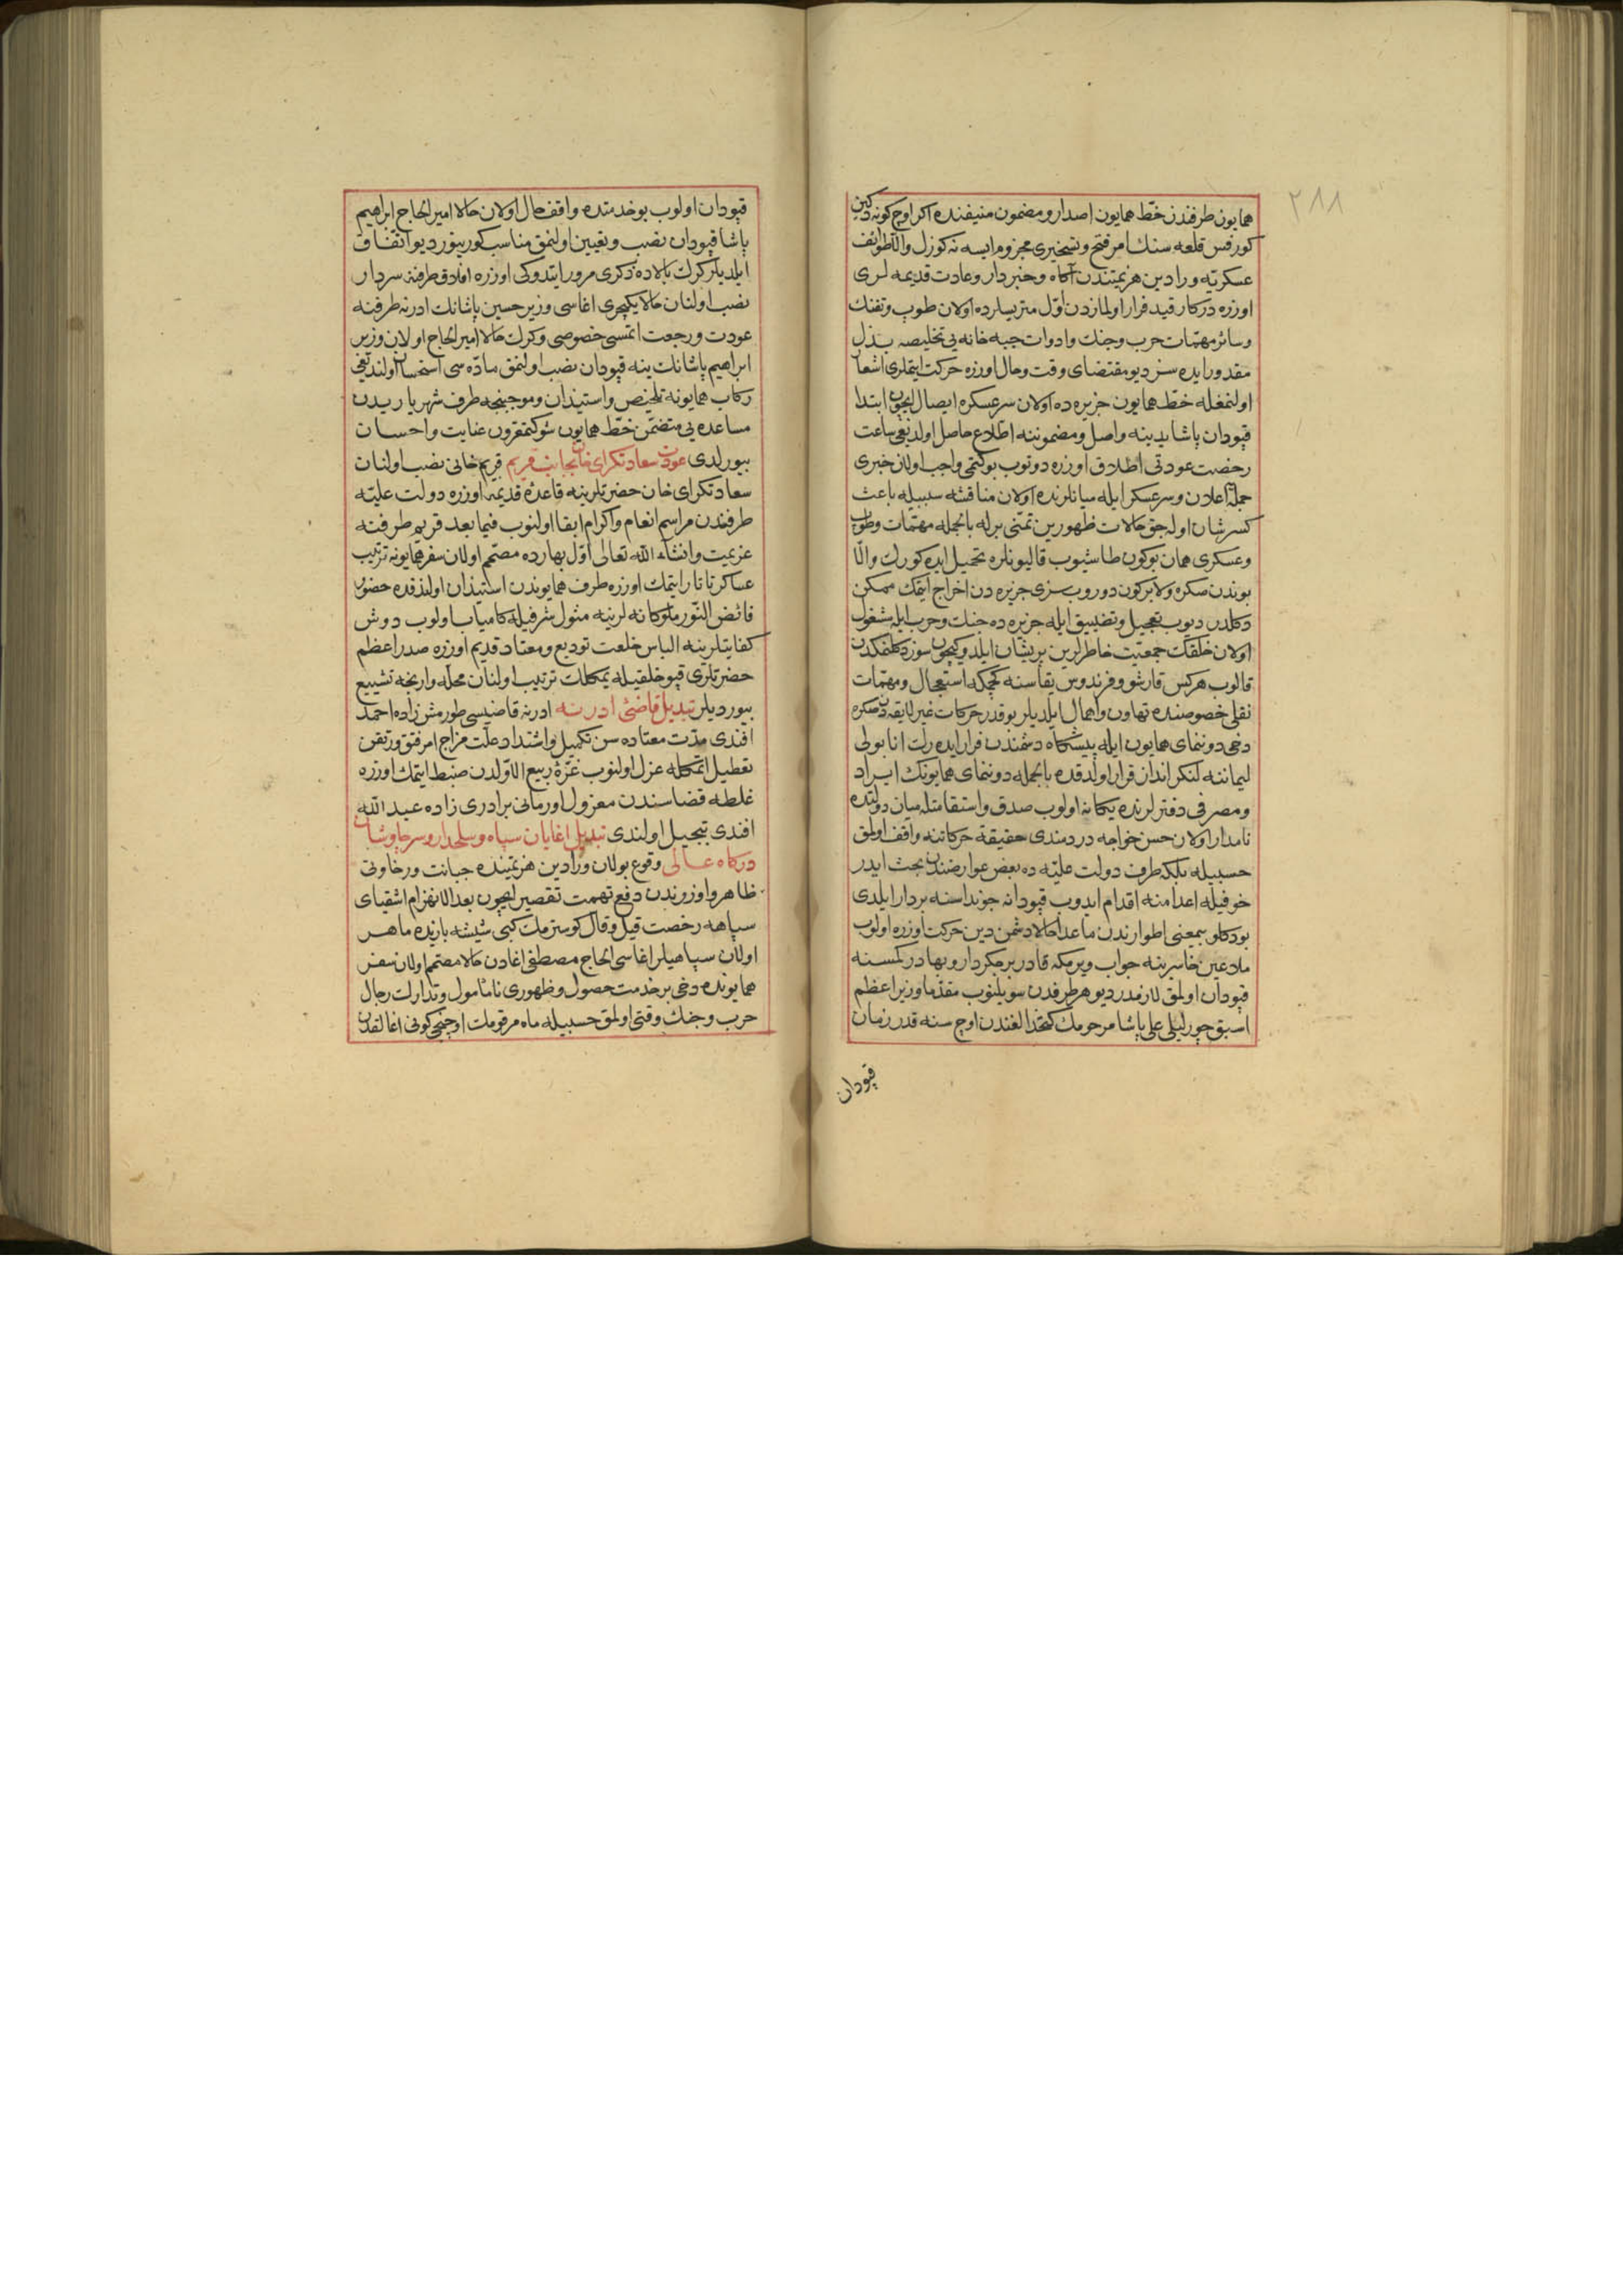 ٢٨٨
همايون طرفندن خط همايون اصدار و مضمون منيفنده اكر اوچ كونه دكين
كورفس قلعه سنك امر فتح و تسخيرى مجزوم ايسه نه كوزل والا طوائف
عسكريه ورادين هزيمتندن آكاه و خبردار و عادت قديمه لرى
اوزره دركار قيد فرار اولمازدن اول متريسلرده اولان طوب و تفنك
و سائر مهمات حرب و جنك و ادوات جبه خانه يى تخليصه بذل
مقدور ايده سز ديو مقتضاى وقت و حال اوزره حركت ايتملرى اشعار
اولنمغله خط همايون جزيره ده اولان سرعسكره ايصال ايچون ابتدا
قپودان پاشا يدينه واصل و مضموننه اطلاع حاصل اولديغى ساعت
رخصت عودتى اطلاق اوزره دوتوب بو كتمى واجب اولان خبرى
جمله اعلان و سرعسكر ايله ميانلرنده اولان مناقشه سببيله باعث
كسر شان اوله جق حالات ظهورين تمنى برله بالجمله مهمات و طوب
و عسكرى همان بوكون طاشيوب قاليونلره تحميل ايده كورك والا
بوندن صكره ولا بركون دوروب سزى جزيره دن اخراج ايتمك ممكن
دكلدر ديوب تعجيل و تضييق ايله جزيره ده جنك و حرب ايله مشغول
اولان خلقك جمعيت خاطرلرين پريشان ايلدوكيچون سوز دكلمكدن
قالوب هركس قارشو و فرندوس يقاسنه كچمكه استعجال و مهمات
نقلى خصوصنده تهاون و اهمال ايلديلر بو قدر حركات غير لايقه دن صكره
دخى دوننماى همايون ايله پيشكاه دشمندن فرار ايده رك انابولى
ليماننه لنكر انداز قرار اولدقده بالجمله دوننماى همايونك ايراد
و مصرفى دفترلرنده يكانه اولوب صدق و استقامتله ميان دولتده
نامدار اولان حسن خواجه دردمندى حقيقة حركاتنه واقف اولمق
حسبيله بلكه طرف دولت عليه ده بعض عوارضندن بحث ايدر
خوفيله اعدامنه اقدام ايدوب قپودانه جونداسنه بردار ايلدى
بو دكلو بيمعنى اطوارندن ماعدا حالا دشمن دين حركت اوزره اولوب
ملاعين خاسرينه جواب ويرمكه قادر بر جكردار و بهادر كمسنه
قپودان اولمق لازمدر ديو هر طرفدن سويلنوب مقدما وزير اعظم
اسبق چورليلى على پاشا مرحومك كتخدالغندن اوچ سنه قدر زمان
قپودان
قپودان اولوب بو خدمتده واقف حال اولان حالا امير الحاج ابراهيم
پاشا قپودان نصب و تعيين اولنمق مناسب كورينور ديو اتفاق
ايلديلر كرك بالاده ذكرى مرور ايتدوكى اوزره افلاق طرفنه سردار
نصب اولنان حالا يكيچرى اغاسى وزير حسين پاشانك ادرنه طرفنه
عودت و رجعت ايتمسى خصوصى و كرك حالا امير الحاج اولان وزير
ابراهيم پاشانك ينه قپودان نصب اولنمق ماده سى استحسان اولنديغى
ركاب همايونه تلخيص و استيذان و موجبنجه طرف شهرياريدن
مساعده يى متضمن خط همايون شوكتمقرون عنايت و احسان
بيورلدى عودت سعادتكراى خان بجانب قريم قريم خانى نصب اولنان
سعادتكراى خان حضرتلرينه قاعده قديمه اوزره دولت عليه
طرفندن مراسم انعام و اكرام ابقا اولنوب فيما بعد قريم طرفنه
عزيمت و انشاء الله تعالى اول بهارده مصمم اولان سفر همايونه ترتيب
عساكر تاتار ايتمك اوزره طرف همايوندن استيذان اولندقده حضور
فائض النور ملوكانه لرينه مثول شرفيله كامياب اولوب دوش
كفايتلرينه الباس خلعت توديع و معتاد قديم اوزره صدر اعظم
حضرتلرى قپو خلقيله يمكلك ترتيب اولنان محله وارنجه تشييع
بيورديلر تبديل قاضئ ادرنه ادرنه قاضيسى طورمش زاده احمد
افندى مدت معتاده سن تكميل و اشتداد علت مزاج امر فتق و رتقن
تعطيل ايتمكله عزل اولنوب غره ربيع الاولدن ضبط ايتمك اوزره
غلطه قضاسندن معزول اورمانى برادرى زاده عبد الله
افندى تبجيل اولندى تبديل اغايان سپاه و سلحدار و سر چاوشان
دركاه عالى وقوع بولان ورادين هزيمتنده جبانت و رخاوتى
ظاهر و اوزرندن دفع تهمت تقصير ايچون بعد الانهزام اشقياى
سپاهه رخصت قيل و قال كوسترمك كبى شيشه بازيده ماهر
اولان سپاهيلر اغاسى الحاج مصطفى اغادن حالا مصمم اولان سفر
همايونده دخى بر خدمت حصول و ظهورى نامأمول و تدارك رجال
حرب و جنك وقتى اولمق حسبيله ماه مرقومك اوچنجى كونى اغالقدن